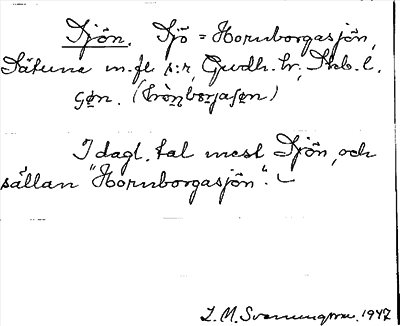 Sjön. Sjö = Hornborgasjön,
Sätuna m. fl s:r, Gudh. hr, Skb. l.
ʂøn.
I dagl. tal mest Sjön, och
sällan "Hornborgasjön".
L. M. Svenungsson. 1947